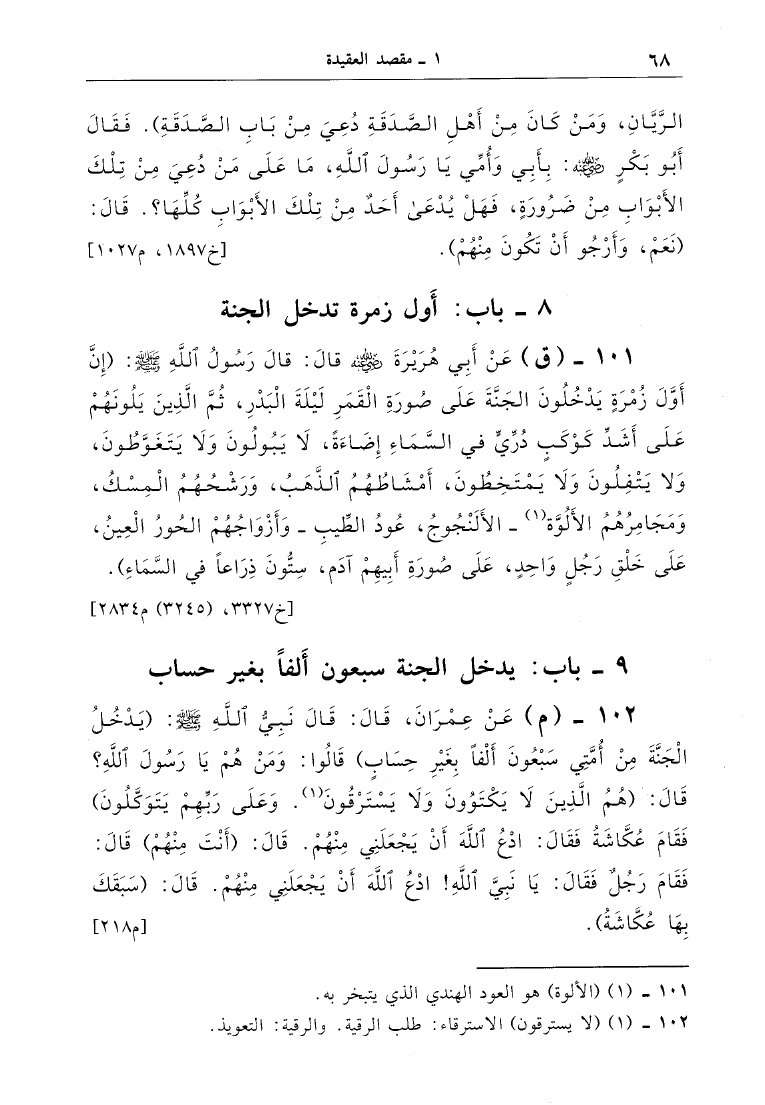 ٦٨ ١ ـ مقصد العقيدة
الرَّيَّانِ، وَمَنْ كَانَ مِنْ أَهْلِ الصَّدَقَةِ دُعِيَ مِنْ بَابِ الصَّدَقَةِ). فَقَالَ
أَبُو بَكْرٍ رضي الله عنه: بِأَبِي وَأُمِّي يَا رَسُولَ ٱللَّهِ، مَا عَلَى مَنْ دُعِيَ مِنْ تِلْكَ
الأَبْوَابِ مِنْ ضَرُورَةٍ، فَهَلْ يُدْعَىٰ أَحَدٌ مِنْ تِلْكَ الأَبْوَابِ كُلِّهَا؟. قَالَ:
(نَعَمْ، وَأَرْجُو أَنْ تَكُونَ مِنْهُمْ). [خ١٨٩٧، م١٠٢٧]
٨ ـ باب: أَول زمرة تدخل الجنة
١٠١ ـ (ق) عَنْ أَبِي هُرَيْرَةَ رضي الله عنه قَالَ: قَالَ رَسُولُ ٱللَّهِ ﷺ: (إِنَّ
أَوَّلَ زُمْرَةٍ يَدْخُلُونَ الجَنَّةَ عَلَى صُورَةِ الْقَمَرِ لَيْلَةَ الْبَدْرِ، ثُمَّ الَّذِينَ يَلُونَهُمْ
عَلَى أَشَدِّ كَوْكَبٍ دُرِّيٍّ في السَّمَاءِ إِضَاءَةً، لَا يَبُولُونَ وَلَا يَتَغَوَّطُونَ،
وَلَا يَتْفِلُونَ وَلَا يَمْتَخِطُونَ، أَمْشَاطُهُمُ ٱلذَّهَبُ، وَرَشْحُهُمُ الْمِسْكُ،
وَمَجَامِرُهُمُ الأَلُوَّة(١) ـ الأَلَنْجُوجُ، عُودُ الطِّيبِ ـ وَأَزْوَاجُهُمْ الحُورُ الْعِينُ،
عَلَى خَلْقِ رَجُلٍ وَاحِدٍ، عَلَى صُورَةِ أَبِيهِمْ آدَم، سِتُّونَ ذِرَاعاً في السَّمَاءِ).
[خ٣٣٢٧، (٣٢٤٥) م٢٨٣٤]
٩ ـ باب: يدخل الجنة سبعون أَلفاً بغير حساب
١٠٢ ـ (م) عَنْ عِمْرَانَ، قَالَ: قَالَ نَبِيُّ ٱللَّهِ ﷺ: (يَدْخُلُ
الْجَنَّةَ مِنْ أُمَّتِي سَبْعُونَ أَلْفاً بِغَيْرِ حِسَابٍ) قَالُوا: وَمَنْ هُمْ يَا رَسُولَ ٱللَّهِ؟
قَالَ: (هُمُ الَّذِينَ لَا يَكْتَوُونَ وَلَا يَسْتَرْقُونَ(١). وَعَلَى رَبِّهِمْ يَتَوَكَّلُونَ)
فَقَامَ عُكَّاشَةُ فَقَالَ: ادْعُ ٱللَّهَ أَنْ يَجْعَلَنِي مِنْهُمْ. قَالَ: (أَنْتَ مِنْهُمْ) قَالَ:
فَقَامَ رَجُلٌ فَقَالَ: يَا نَبِيَّ ٱللَّهِ! ادْعُ ٱللَّهَ أَنْ يَجْعَلَنِي مِنْهُمْ. قَالَ: (سَبَقَكَ
بِهَا عُكَّاشَةُ). [م٢١٨]
١٠١ ـ (١) (الألوة) هو العود الهندي الذي يتبخر به.
١٠٢ ـ (١) (لا يسترقون) الاسترقاء: طلب الرقية. والرقية: التعويذ.